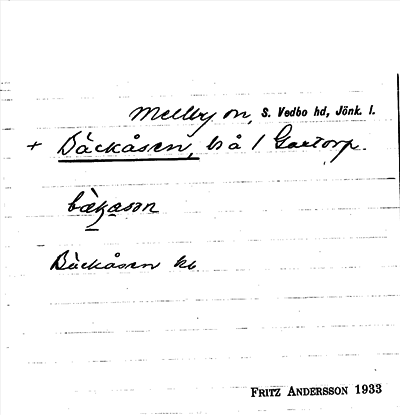 Mellby sn, S. Vedbo hd, Jönk. l.
+ Bäckåsen, bs å 1 Gaetorp.
bäkåsən
Bäckåsen kb
FRITZ ANDERSSON 1933